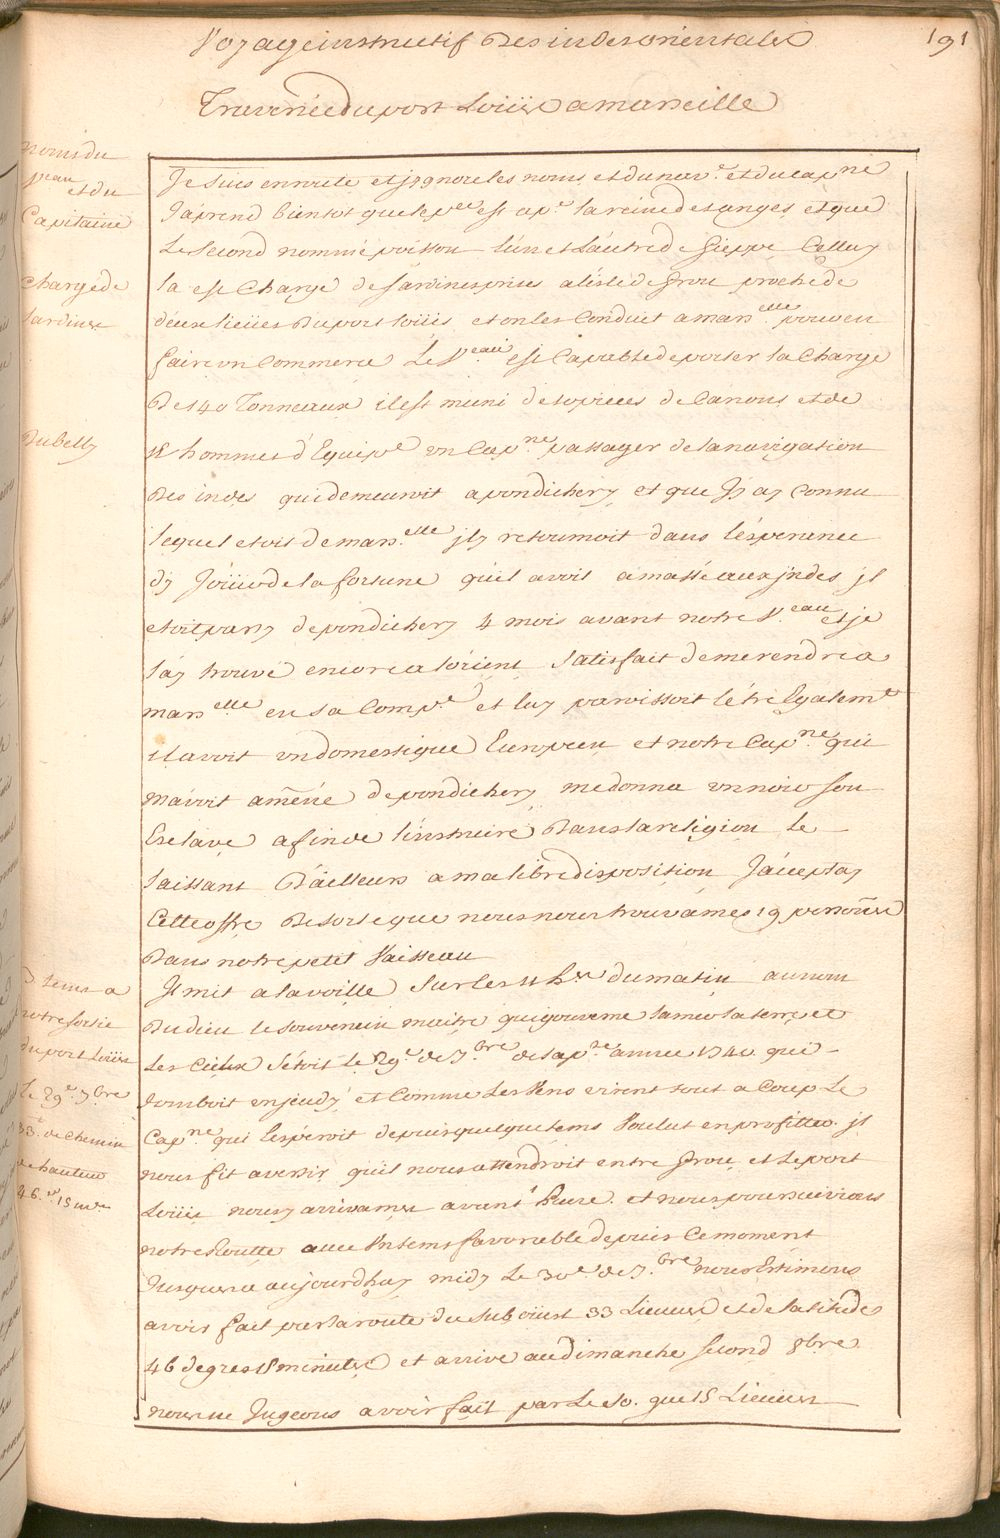 Voyage instructif Des indes orientales
191
Traversée du port Loüis a marseille
noms du
Veau et du
Capitaine
Chargé de
Sardines
Dubelly
Je suis en route et j'ignore les noms et du nav.e et du capne
J'aprend bientot que le per est ap.e la reine des anges, et que
Le Second nommé poisson l'un et L'autre de Dieppe Celluy
la est Chargé de Sardines prises a l'isle de Grou proche de
deux lieües Du port loüis et on les Conduit a mars.elle pour en
faire un Commerce Le V.eau est Capable de porter la Charge
De 140 Tonneaux il est muni de 10 pieces de Canons et de
18 hommes d'Equipe un Cap.ne passager de la navigation
Des indes qui demeuroit a pondichery et que J'ay Connu
lequel etoit de mars.elle jl y retournoit dans l'esperance
d'y Joüir de la fortune qu'il avoit amassée aux jndes jl
etoit party de pondichery 4 mois avant notre V.eau et je
l'ay trouvé encore a lorient Satisfait de me rendre a
mars.elle en sa Comp.e et luy paroissoit l'étre Egalem.t
il avoit un domestique Européen et notre Cap.ne qui
m'avoit améné de pondichery me donna un noir Son
Esclave afin de l'instruire Dans la religion le
laissant D'ailleurs a ma libre disposition J'aceptay
Cette offre De sorte que nous nous trouvames 19 personnes
Dans notre petit Vaisseau
Jl mit a la voille Sur les 11 h.es du matin au nom
Du dieu le souverain maitre qui gouverne la mer la terre et
Les Cieux C'étoit le 29.e de 7.bre de la p.te année 1740 qui
Tomboit en jeudy et Comme Les Vens virent tout a Coup Le
Cap.ne qui l'esperoit depuis quelque tems Voulut en profitter jl
nous fit avertir qu'il nous attendroit entre Grou et Le port
Loüis nous y arrivames avant 1 heure et nous poursuivions
notre Routte avec Un tems favorable depuis Ce moment
Jusqu'a aujourd'huy midy Le 30e de 7.bre nous Estimons
avoir fait par la route du Sud oüest 33 Lieues et de latitude
46 degres 15 minutes et arrivé au dimanche Second 8bre
nous ne Jugeons avoir fait par Le So. que 15 Lieues
notre sortie
du port Loüis
Le 29.e 7bre
33.l de Chemin
de hauteur
46.d 15 m.es